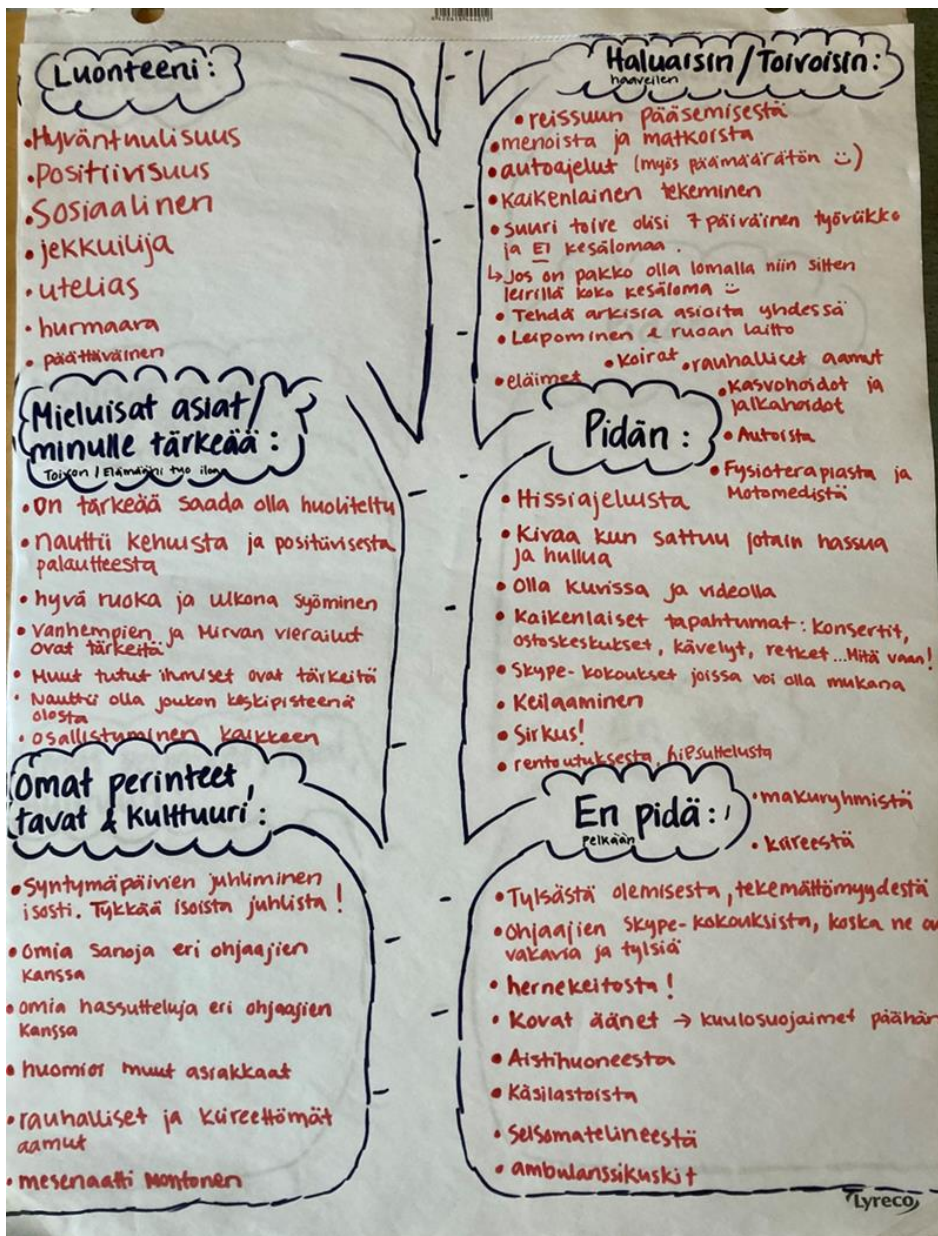 Luonteeni:
•Hyväntuulisuus
•positiivisuus
•Sosiaalinen
•jekkuilija
•utelias
•hurmaara
•päättäväinen
Mieluisat asiat/
minulle tärkeää:
Toivon / Elämääni tuo iloa
•On tärkeää saada olla huoliteltu
•nauttii kehuista ja positiivisesta
palautteesta
•hyvä ruoka ja ulkona syöminen
•Vanhempien ja Mirvan vierailut
ovat tärkeitä
•Muut tutut ihmiset ovat tärkeitä
•Nauttii olla joukon keskipisteenä
olosta
•osallistuminen kaikkeen
Omat perinteet,
tavat & kulttuuri:
•Syntymäpäivien juhliminen
isosti. Tykkää isoista juhlista!
•omia sanoja eri ohjaajien
kanssa
•omia hassutteluja eri ohjaajien
kanssa
•huomioi muut asiakkaat
•rauhalliset ja kiireettömät
aamut
•mesenaatti Montonen
Haluaisin/Toivoisin:
haaveilen
•reissuun pääsemisestä
•menoista ja matkoista
•autoajelut (myös päämäärätön :))
•kaikenlainen tekeminen
•suuri toive olisi 7 päiväinen työviikko
ja EI kesälomaa.
↳Jos on pakko olla lomalla niin sitten
leirillä koko kesäloma :)
•Tehdä arkisia asioita yhdessä
•Leipominen & ruoan laitto
•eläimet •koirat •rauhalliset aamut
Pidän:
•kasvohoidot ja
jalkahoidot
•Autoista
•Fysioterapiasta ja
Motomedistä
•Hissiajelusta
•Kivaa kun sattuu jotain hassua
ja hullua
•Olla kuvissa ja videolla
•Kaikenlaiset tapahtumat: konsertit,
ostoskeskukset, kävelyt, retket...Mitä vaan!
•Skype-kokoukset joissa voi olla mukana
•Keilaaminen
•Sirkus!
•rentoutuksesta, hipsuttelusta
En pidä:
pelkään
•makuryhmistä
•kiireestä
•Tylsästä olemisesta, tekemättömyydestä
•Ohjaajien Skype-kokouksista, koska ne ov
vakavia ja tylsiä
•hernekeitosta!
•Kovat äänet → kuulosuojaimet päähän
•Aistihuoneesta
•Käsilastoista
•Seisomatelineestä
•ambulanssikuskit
Lyreco